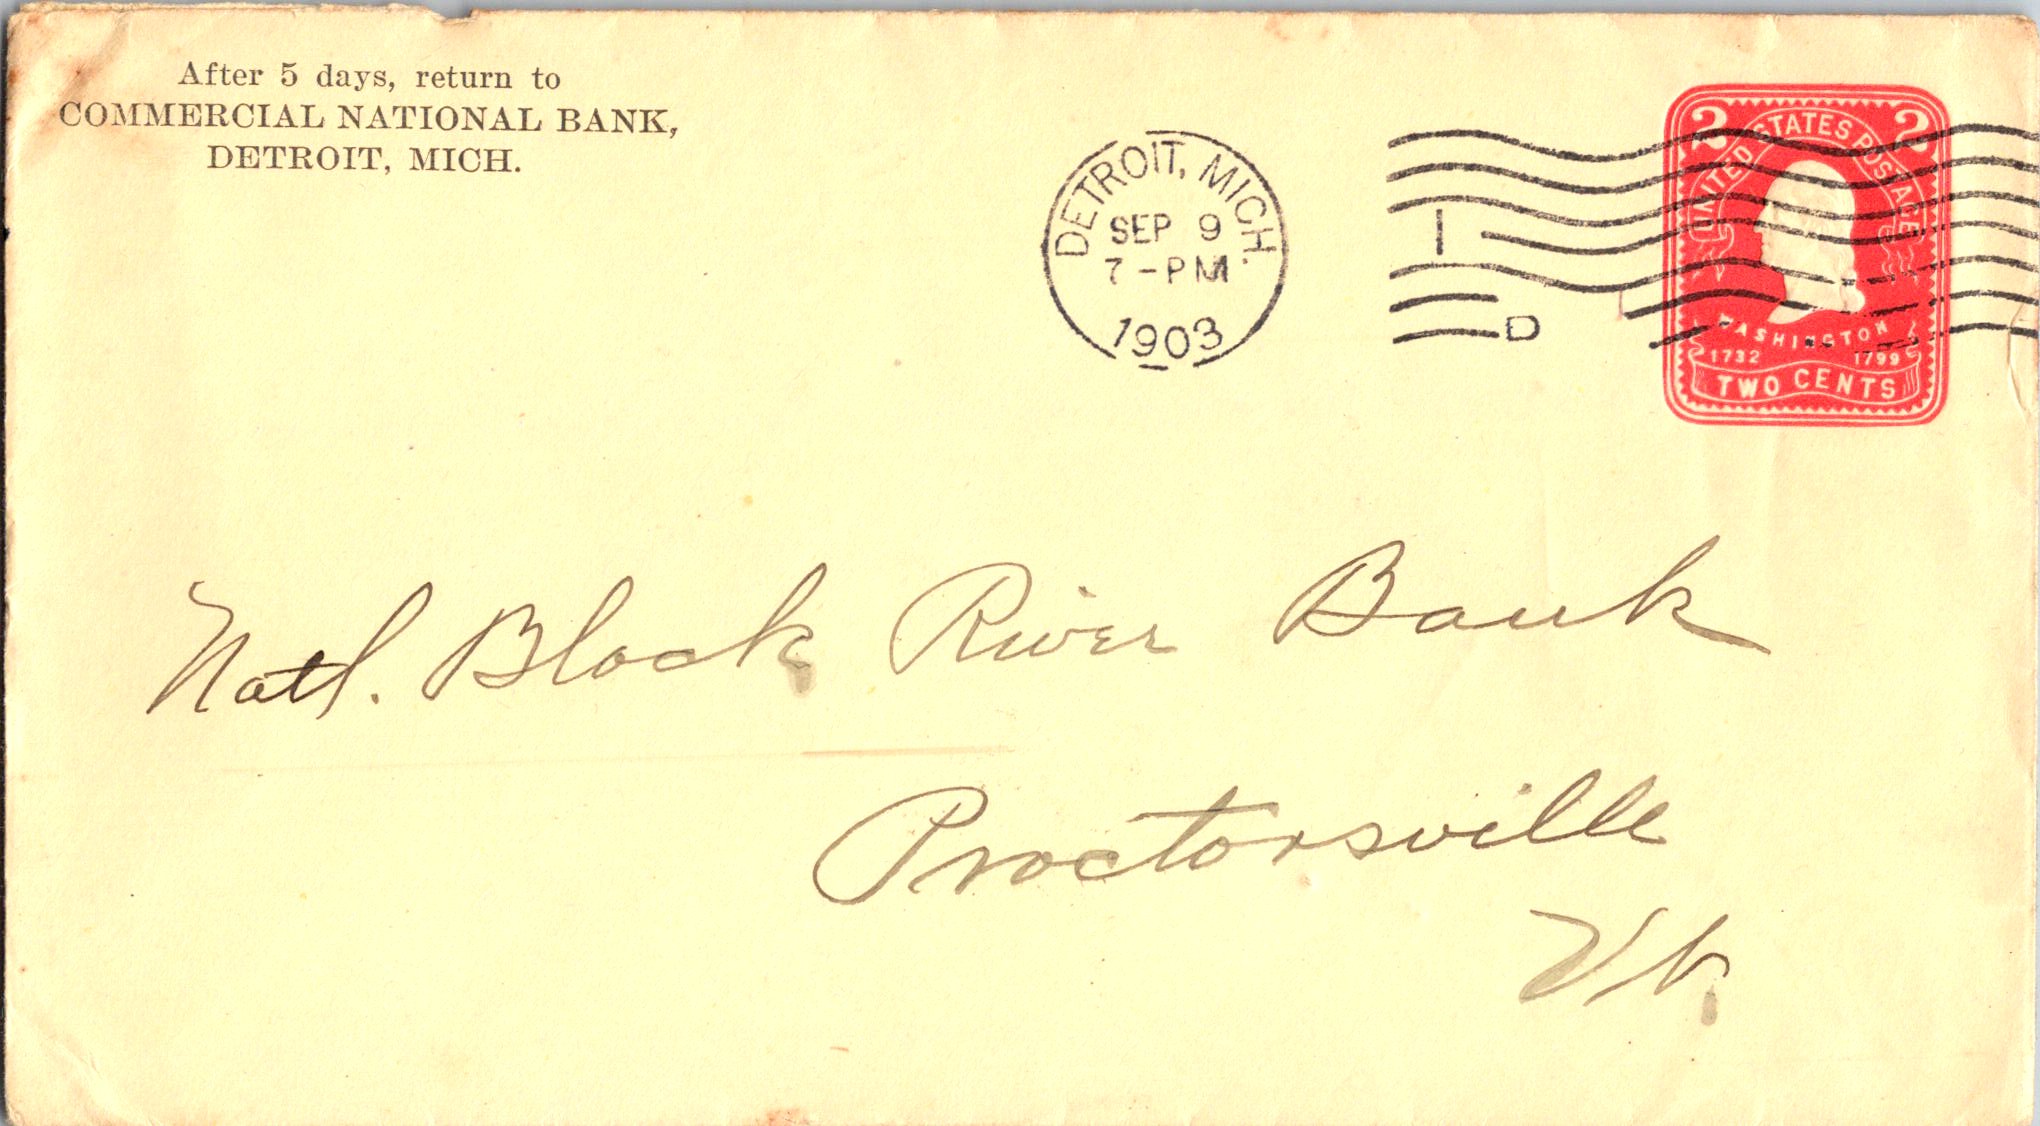 After 5 days, return to
COMMERCIAL NATIONAL BANK,
DETROIT, MICH.
DETROIT, MICH.
SEP 9
7-PM
1903
1
D
2 2
UNITED STATES POSTAGE
WASHINGTON
1732 1799
TWO CENTS
Natl. Black River Bank
Proctorsville
Vt.